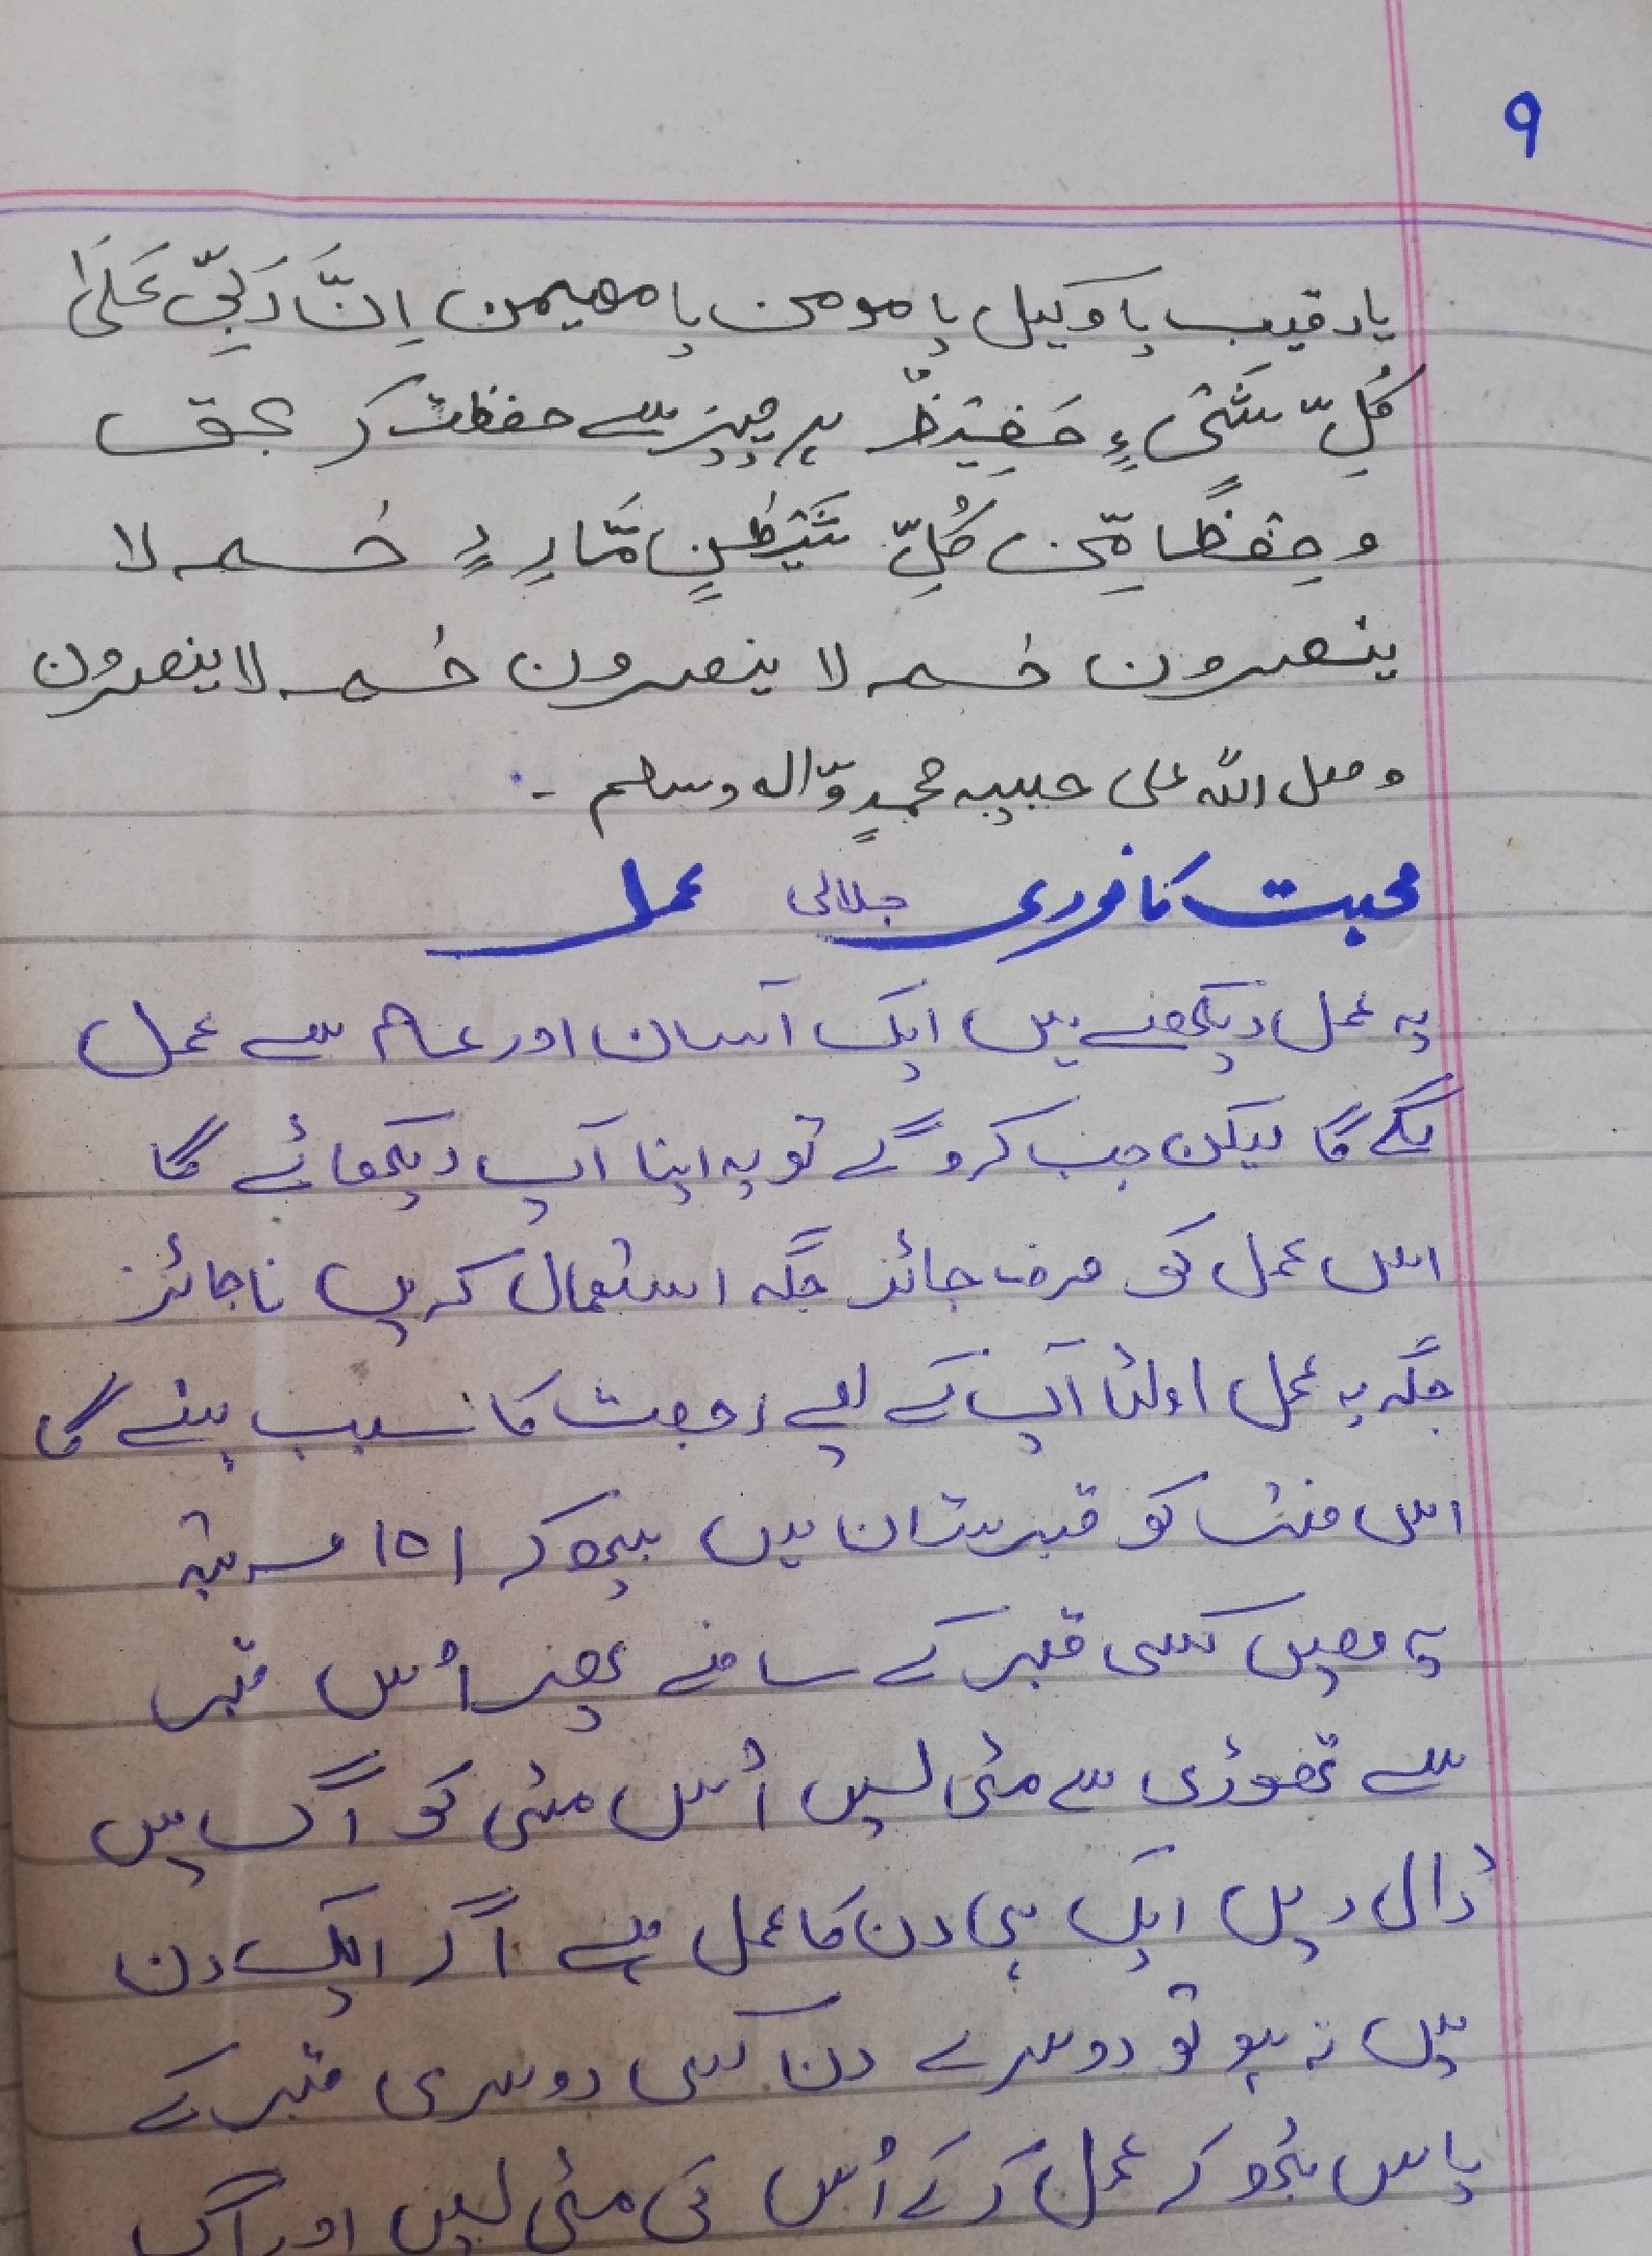 ۹
یا رقیب یا وکیل یا مومن یا مھیمن اِنَّ رَبِّی عَلیٰ
کُلِّ شَیْءٍ حَفِیْظٌ ہر چیز سے حفظت کر بحق
و حِفظًا مِّن کُلِّ شَیْطٰنٍ مَّارِدٍ حٰـمـ لا
ینصرون حٰـمـ لا ینصرون حٰـمـ لا ینصرون
و صل اللہ علی حبیبہ محمدٍ وّالہ وسلم ۔
محبت کا فوری جلالی عمل
یہ عمل دیکھنے میں ایک آسان اور عام سے عمل
لگے گا لیکن جب کرو گے تو یہ اپنا آپ دیکھائے گا
اس عمل کو صرف جائز جگہ استعمال کریں ناجائز
جگہ یہ عمل اولٹا آپ کے لیے رجعت کا سبب بنے گا
اس منتر کو قبرستان میں بیٹھ کر ۱۵۱ مرتبہ
پڑھیں کسی قبر کے سامنے پھر اُس قبر
سے تھوڑی سے مٹی لیں اُس مٹی کو آگ میں
ڈال دیں ایک ہی دن کا عمل ہے اگر ایک دن
میں نہ ہو تو دوسرے دن کسی دوسری قبر کے
پاس بیٹھ کر عمل کر کے اُس کی مٹی لیں اور آگ